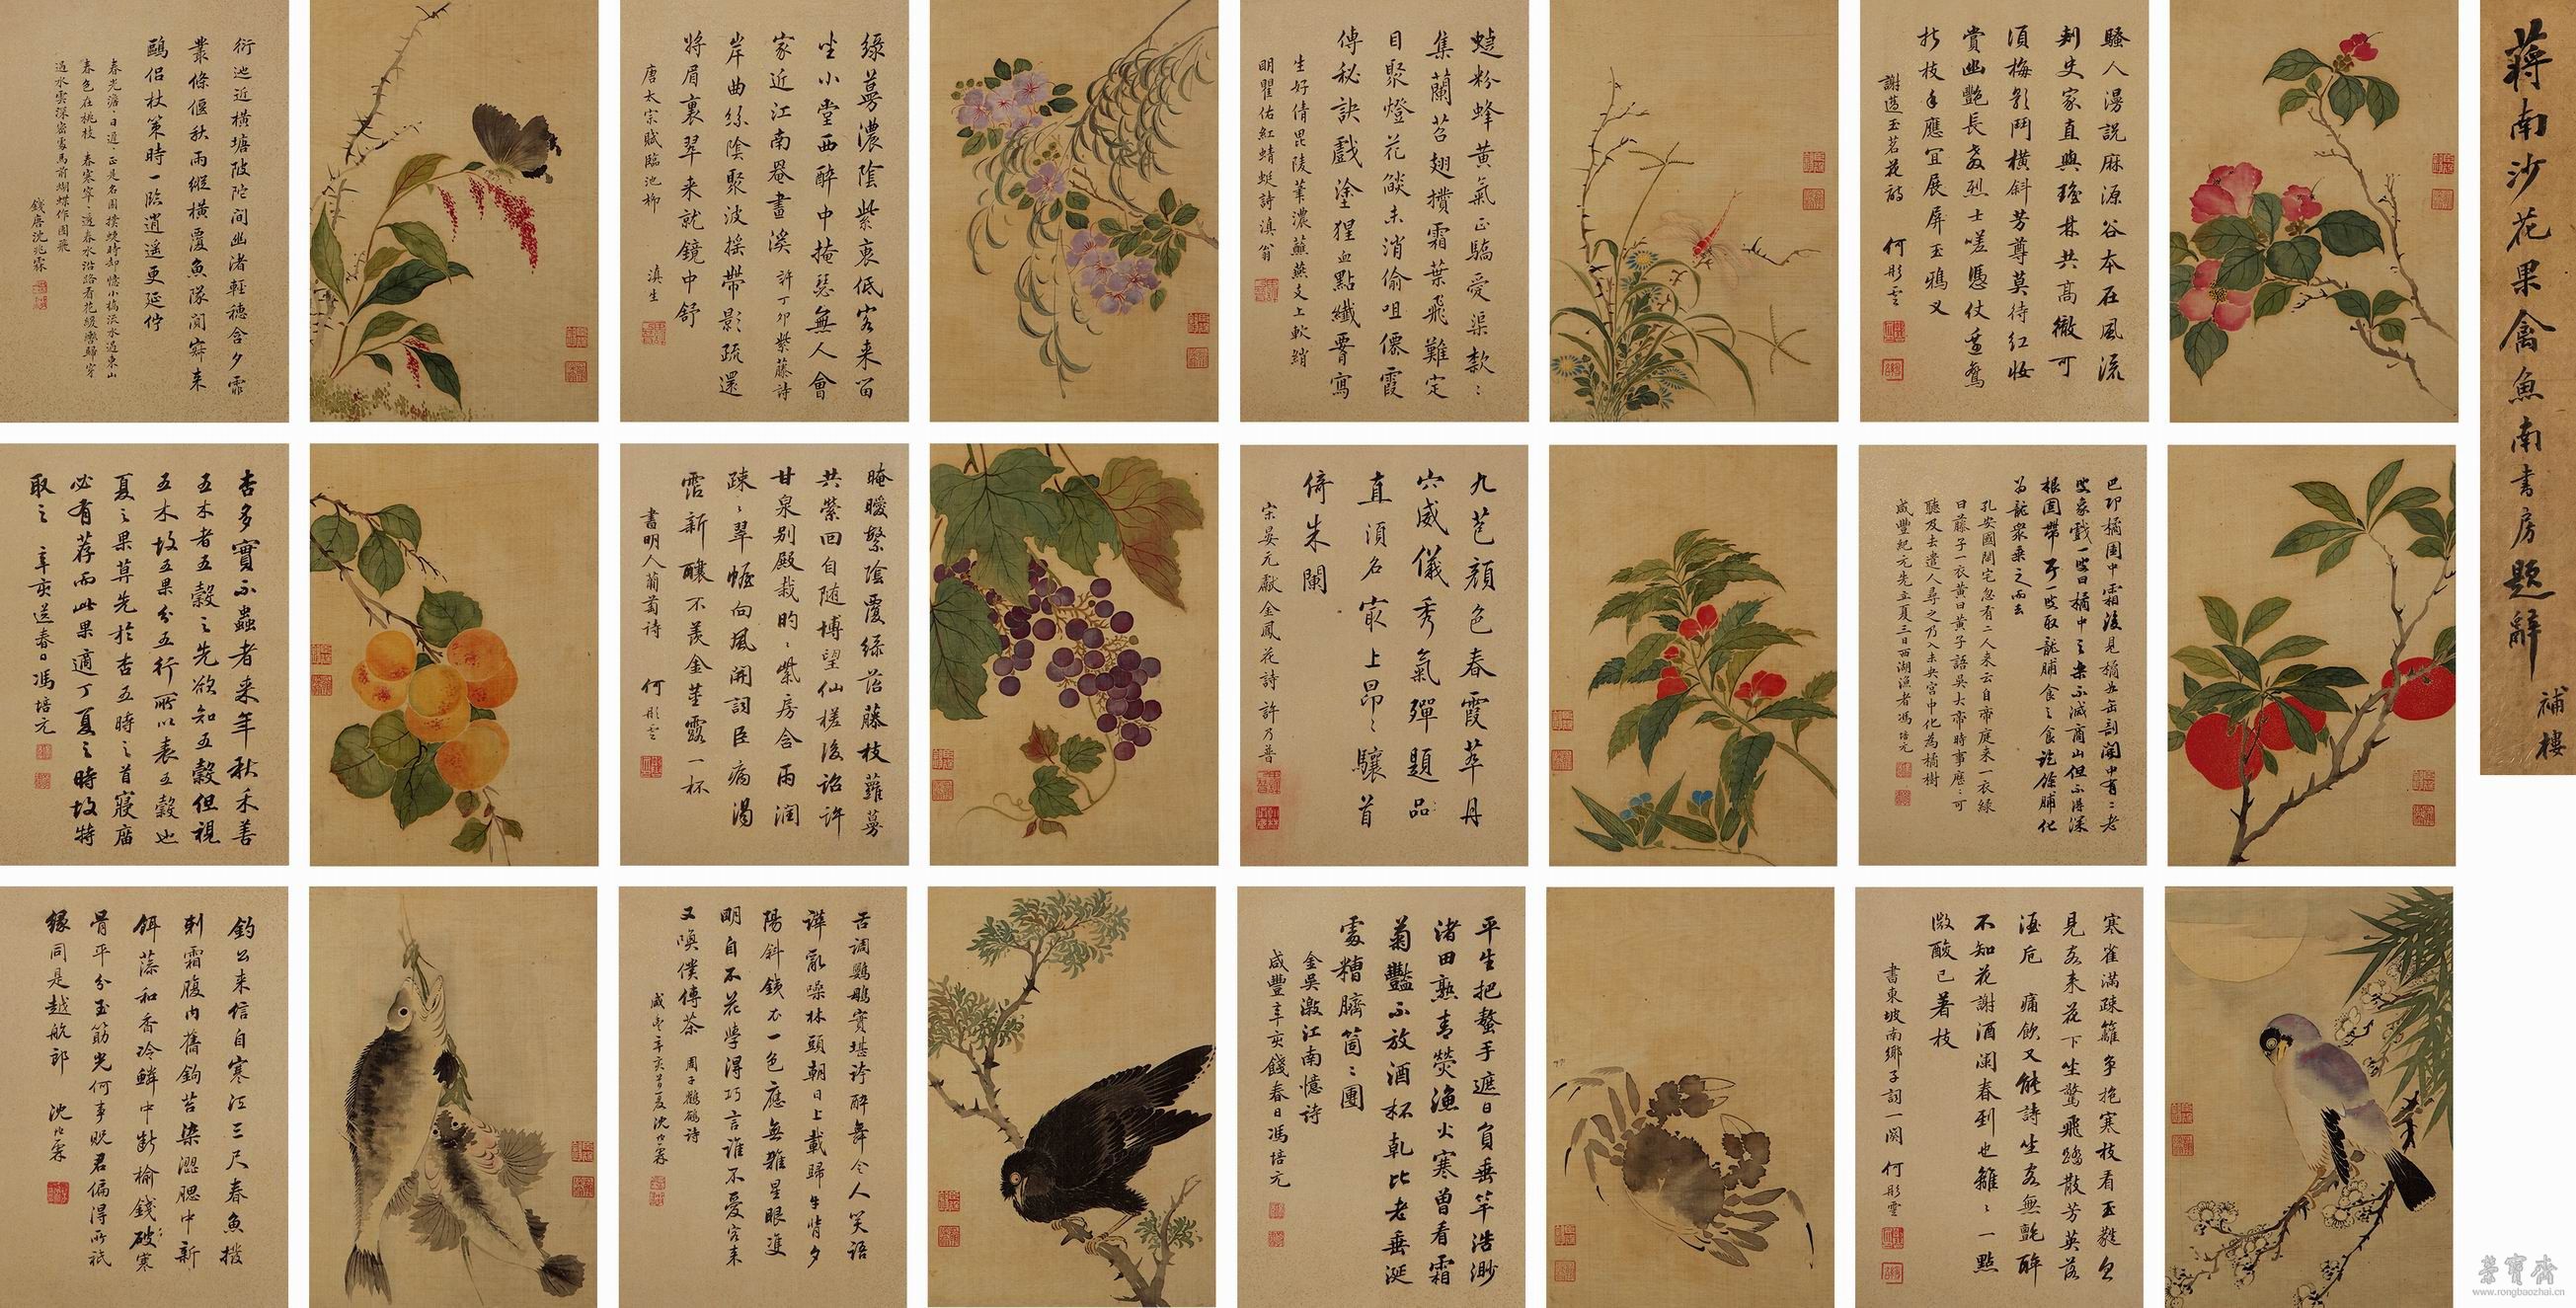 蔣南沙花果禽魚南書房題辭
補樓
騷人漫說麻源谷本在風流
刺史家直與瓊林共高徹可
須梅影鬥橫斜芳尊莫待紅妝
賞幽豔長
烈士嗟憑仗
折枝手應宜展屏玉鴉叉
謝薖玉茗花詩
何彤雲
蜨粉蜂黃氣正驕愛渠款〻
集蘭苕翅攢霜葉飛難定
目聚燈花燄未消偷咀僊霞
傳秘訣戲塗猩血點纖霄寫
生好倩毘陵筆濃蘸燕支上軟綃
明瞿佑紅蜻蜓詩滇翁
綠蔓濃陰紫袖低客来留
坐小堂西醉中掩瑟無人會
家近江南罨畫溪
許丁卯紫藤詩
岸曲絲陰聚波搖帶影疏還
將眉裏翠来就鏡中舒
唐太宗賦臨池柳
滇生
衍迤近橫塘陂陀間幽渚輕穗含夕霏
叢條偃秋雨縱橫覆魚隊閴寂来
鷗侶杖策時一臨逍遙更延佇
錢唐沈兆霖
巴邛橘園中霜後見橘如缶剖開中有二老
叟象戲一叟曰橘中之樂不減商山但不得深
根固蒂耳一叟取龍脯食之食訖餘脯化
為龍眾乘之而去
孔安國開宅忽有二人来云自帝庭来一衣綠
聽及去遣人尋之乃入未央宮中化為橘樹
咸豐紀元先立夏三日西湖漁者馮培元
九苞顏色春霞萃丹
穴威儀秀氣殫題品
直須名最上昂〻驤首
倚朱闌
宋晏元獻金鳳花詩許乃普
晻曖繁陰覆綠苔藤枝蘿蔓
共縈回自随博望仙槎後詔許
甘泉別殿栽的〻紫房含雨潤
疎〻翠幄向風開詞臣病渴
霑新釀不羨金莖露一杯
書明人蒲萄詩
何彤雲
杏多實不蟲者来年秋禾善
五木者五穀之先欲知五穀但視
五木故五果分五行所以表五穀也
夏之果莫先於杏五時之首寢廟
必有荐而此果適丁夏之時故特
取之
辛亥送春日馮培元
寒雀滿疎籬爭抱寒枝看玉蕤忽
見客来花下坐驚飛蹋散芳英落
酒卮
痛飲又能詩坐客無氈醉
不知花謝酒闌春到也離〻一點
微酸已著枝
書東坡南鄉子詞一闋
何彤雲
平生把螯手遮日負垂竿浩渺
渚田熟青熒漁火寒曾看霜
菊豔不放酒杯乾比老垂涎
處糟臍箇〻團
金吳激江南憶詩
咸豐辛亥餞春日馮培元
舌調鸚鵡實堪誇醉舞令人笑語
譁亂噪林頭朝日上載歸牛背夕
陽斜鐵衣一色應無雜星眼雙
明自不花學得巧言誰不愛客来
又喚僕傳茶
周子鸜鵒詩
咸豐辛亥首夏沈兆霖
釣公来信自寒江三尺春魚撥
刺霜腹內舊鉤苔染澀腮中新
餌藻和香冷鱗中斷榆錢破寒
骨平分玉筯光何事貺君偏得所祇
緣同是越航郎
沈兆霖
榮寶齋
www.rongbaozhai.cn